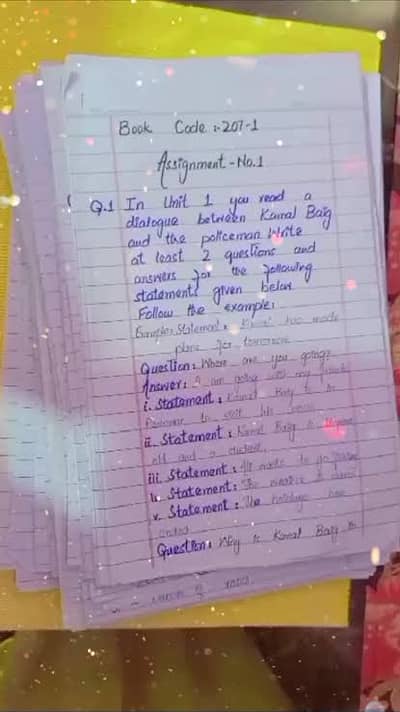 Book Code :-207-1
Assignment-No.1
Q.1 In Unit 1 you read a
dialogue between Kamal Baig
and the policeman. Write
at least 2 questions and
answers for the following
statements given below.
Follow the example:
Example Statement: Kamal has made
plans for tomorrow.
Question: Where are you going?
Answer: I am going with my
i. Statement: Kamal Baig is in
to visit his
ii. Statement: Kamal Baig is
old and a student.
iii. Statement: He wants to go
iv. Statement: The weather is
v. Statement: The holidays have
ended
Question: Why is Kamal Baig in